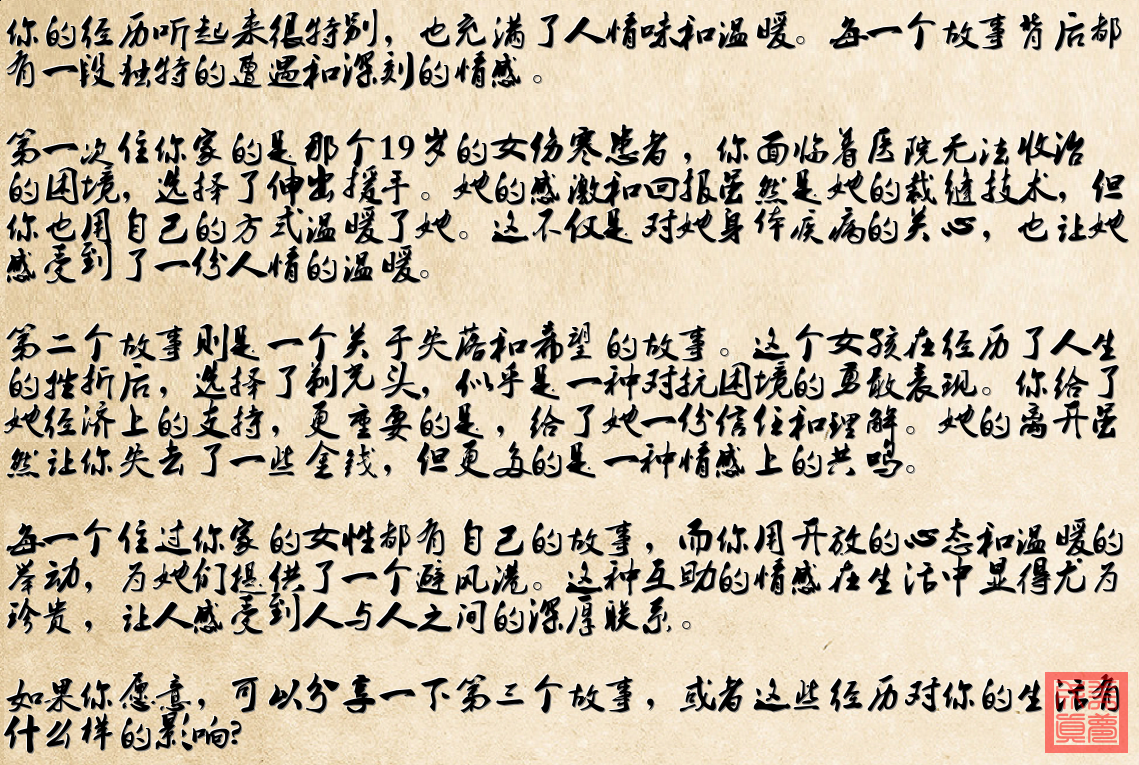 你的经历听起来很特别，也充满了人情味和温暖。每一个故事背后都
有一段独特的遭遇和深刻的情感。
第一次住你家的是那个19岁的女伤寒患者，你面临着医院无法收治
的困境，选择了伸出援手。她的感激和回报虽然是她的裁缝技术，但
你也用自己的方式温暖了她。这不仅是对她身体疾病的关心，也让她
感受到了一份人情的温暖。
第二个故事则是一个关于失落和希望的故事。这个女孩在经历了人生
的挫折后，选择了剃光头，似乎是一种对抗困境的勇敢表现。你给了
她经济上的支持，更重要的是，给了她一份信任和理解。她的离开虽
然让你失去了一些金钱，但更多的是一种情感上的共鸣。
每一个住过你家的女性都有自己的故事，而你用开放的心态和温暖的
举动，为她们提供了一个避风港。这种互助的情感在生活中显得尤为
珍贵，让人感受到人与人之间的深厚联系。
如果你愿意，可以分享一下第三个故事，或者这些经历对你的生活有
什么样的影响?